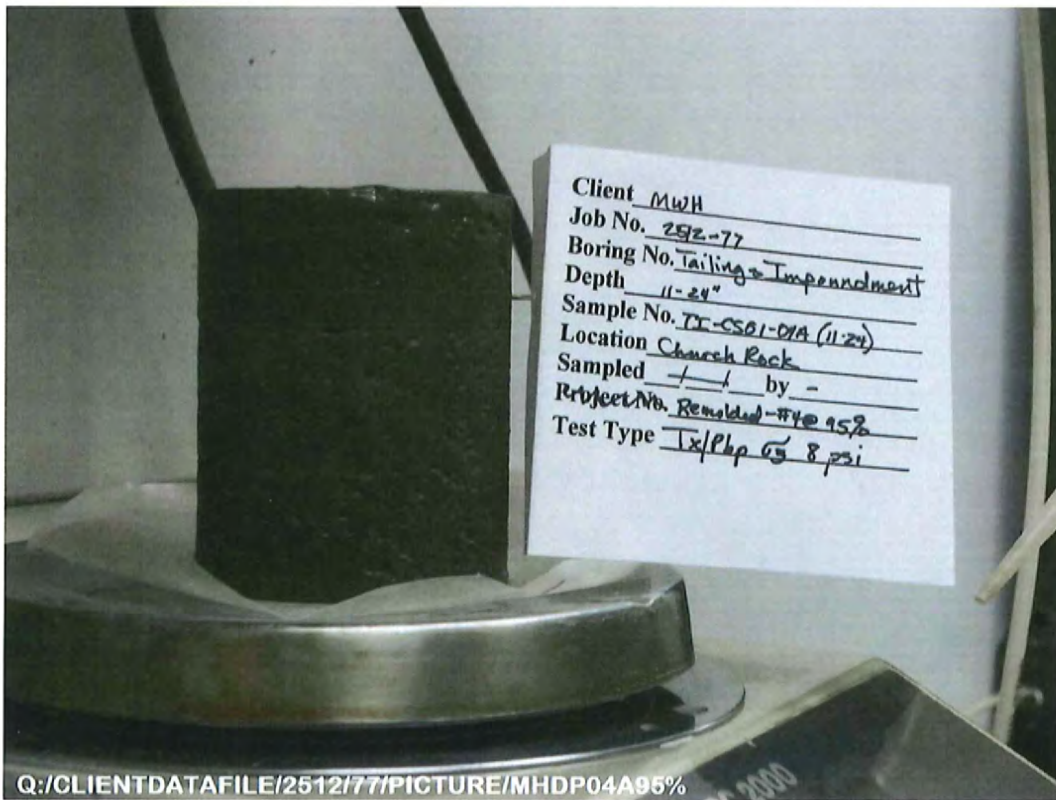 Client MWH
Job No. 2512-77
Boring No. Tailings Impoundment
Depth 11-24"
Sample No. TI-CSB1-04A (11-24)
Location Church Rock
Sampled _/_/_ by -
Project No. Remolded -#4@ 95%
Test Type Tx/Pbp σ3 8 psi
Q:/CLIENTDATAFILE/2512/77/PICTURE/MHDP04A95%
2000